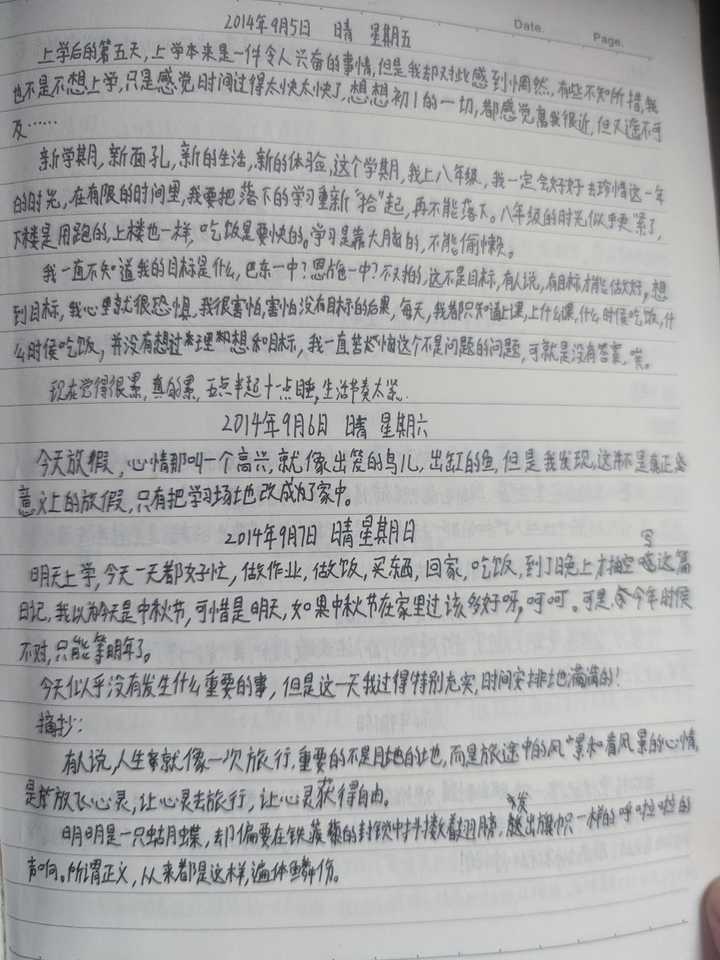 2014年9月5日 晴 星期五
Date.
Page.
上学后的第五天,上学本来是一件令人兴奋的事情,但是我却对此感到惘然,有些不知所措,我
也不是不想上学,只是感觉时间过得太快太快了,想想初1的一切,都感觉离我很近,但又遥不可
及……
新学期,新面孔,新的生活,新的体验,这个学期,我上八年级,我一定会好好去珍惜这一年
的时光,在有限的时间里,我要把落下的学习重新“拾”起,再不能落下。八年级的时光似乎更紧了,
下楼是用跑的,上楼也一样,吃饭是要快的。学习是靠大脑的,不能偷懒。
我一直不知道我的目标是什么,巴东一中?恩施一中?不,这不是目标,有人说,有目标才能做好,想
到目标,我心里就很恐惧,我很害怕,害怕没有目标的后果,每天,我都只知道上课,上什么课,什么时候吃饭,什
么时候吃饭,并没有想过来理想和目标,我一直苦恼这个不是问题的问题,可就是没有答案,唉。
现在觉得很累,真的累,五点半起十一点睡,生活节奏太紧.
2014年9月6日 晴 星期六
今天放假,心情那叫一个高兴,就像出笼的鸟儿,出缸的鱼,但是我发现,这并不是真正
意义上的放假,只有把学习场地改成了家中。
2014年9月7日 晴 星期日
明天上学,今天一天都好忙,做作业,做饭,买东西,回家,吃饭,到了晚上才抽空写这篇
日记,我以为今天是中秋节,可惜是明天,如果中秋节在家里过该多好呀,呵呵。可是,今年时候
不对,只能等明年了。
今天似乎没有发生什么重要的事,但是这一天我过得特别充实,时间安排地满满的!
摘抄:
有人说,人生就像一次旅行,重要的不是目地的地,而是旅途中的风景和看风景的心情,
是放飞心灵,让心灵去旅行,让心灵获得自由。
明明是一只蝴蝶,却偏要在铁蒺藜的封锁中扑扇翅膀,发出旗帜一样的呼啦啦的
声响。所谓正义,从来都是这样,遍体鳞伤。